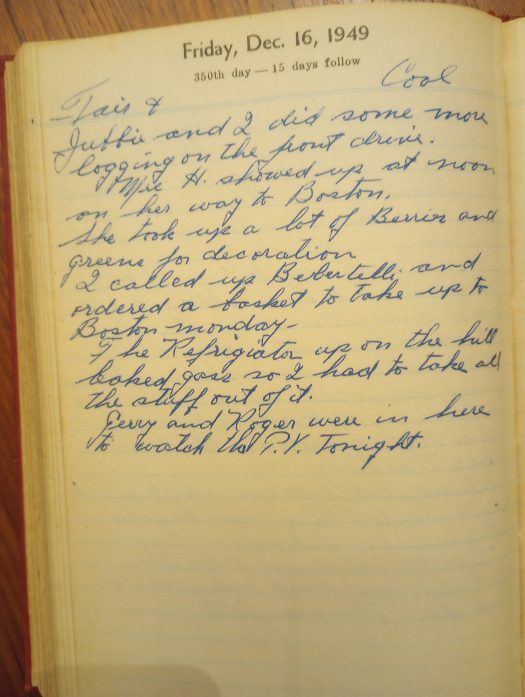 Friday, Dec. 16, 1949
350th day — 15 days follow
Fair & Cool
Jubbie and I did some more
logging on the front drive.
Mrs H. showed up at noon
on her way to Boston.
She took up a lot of Berries and
greens for decoration
I called up and
ordered a basket to take up to
Boston monday-
The Refrigiator up on the hill
leaked gass so I had to take all
the stuff out of it.
Gerry and Roger were in here
to watch the T.V. Tonight.